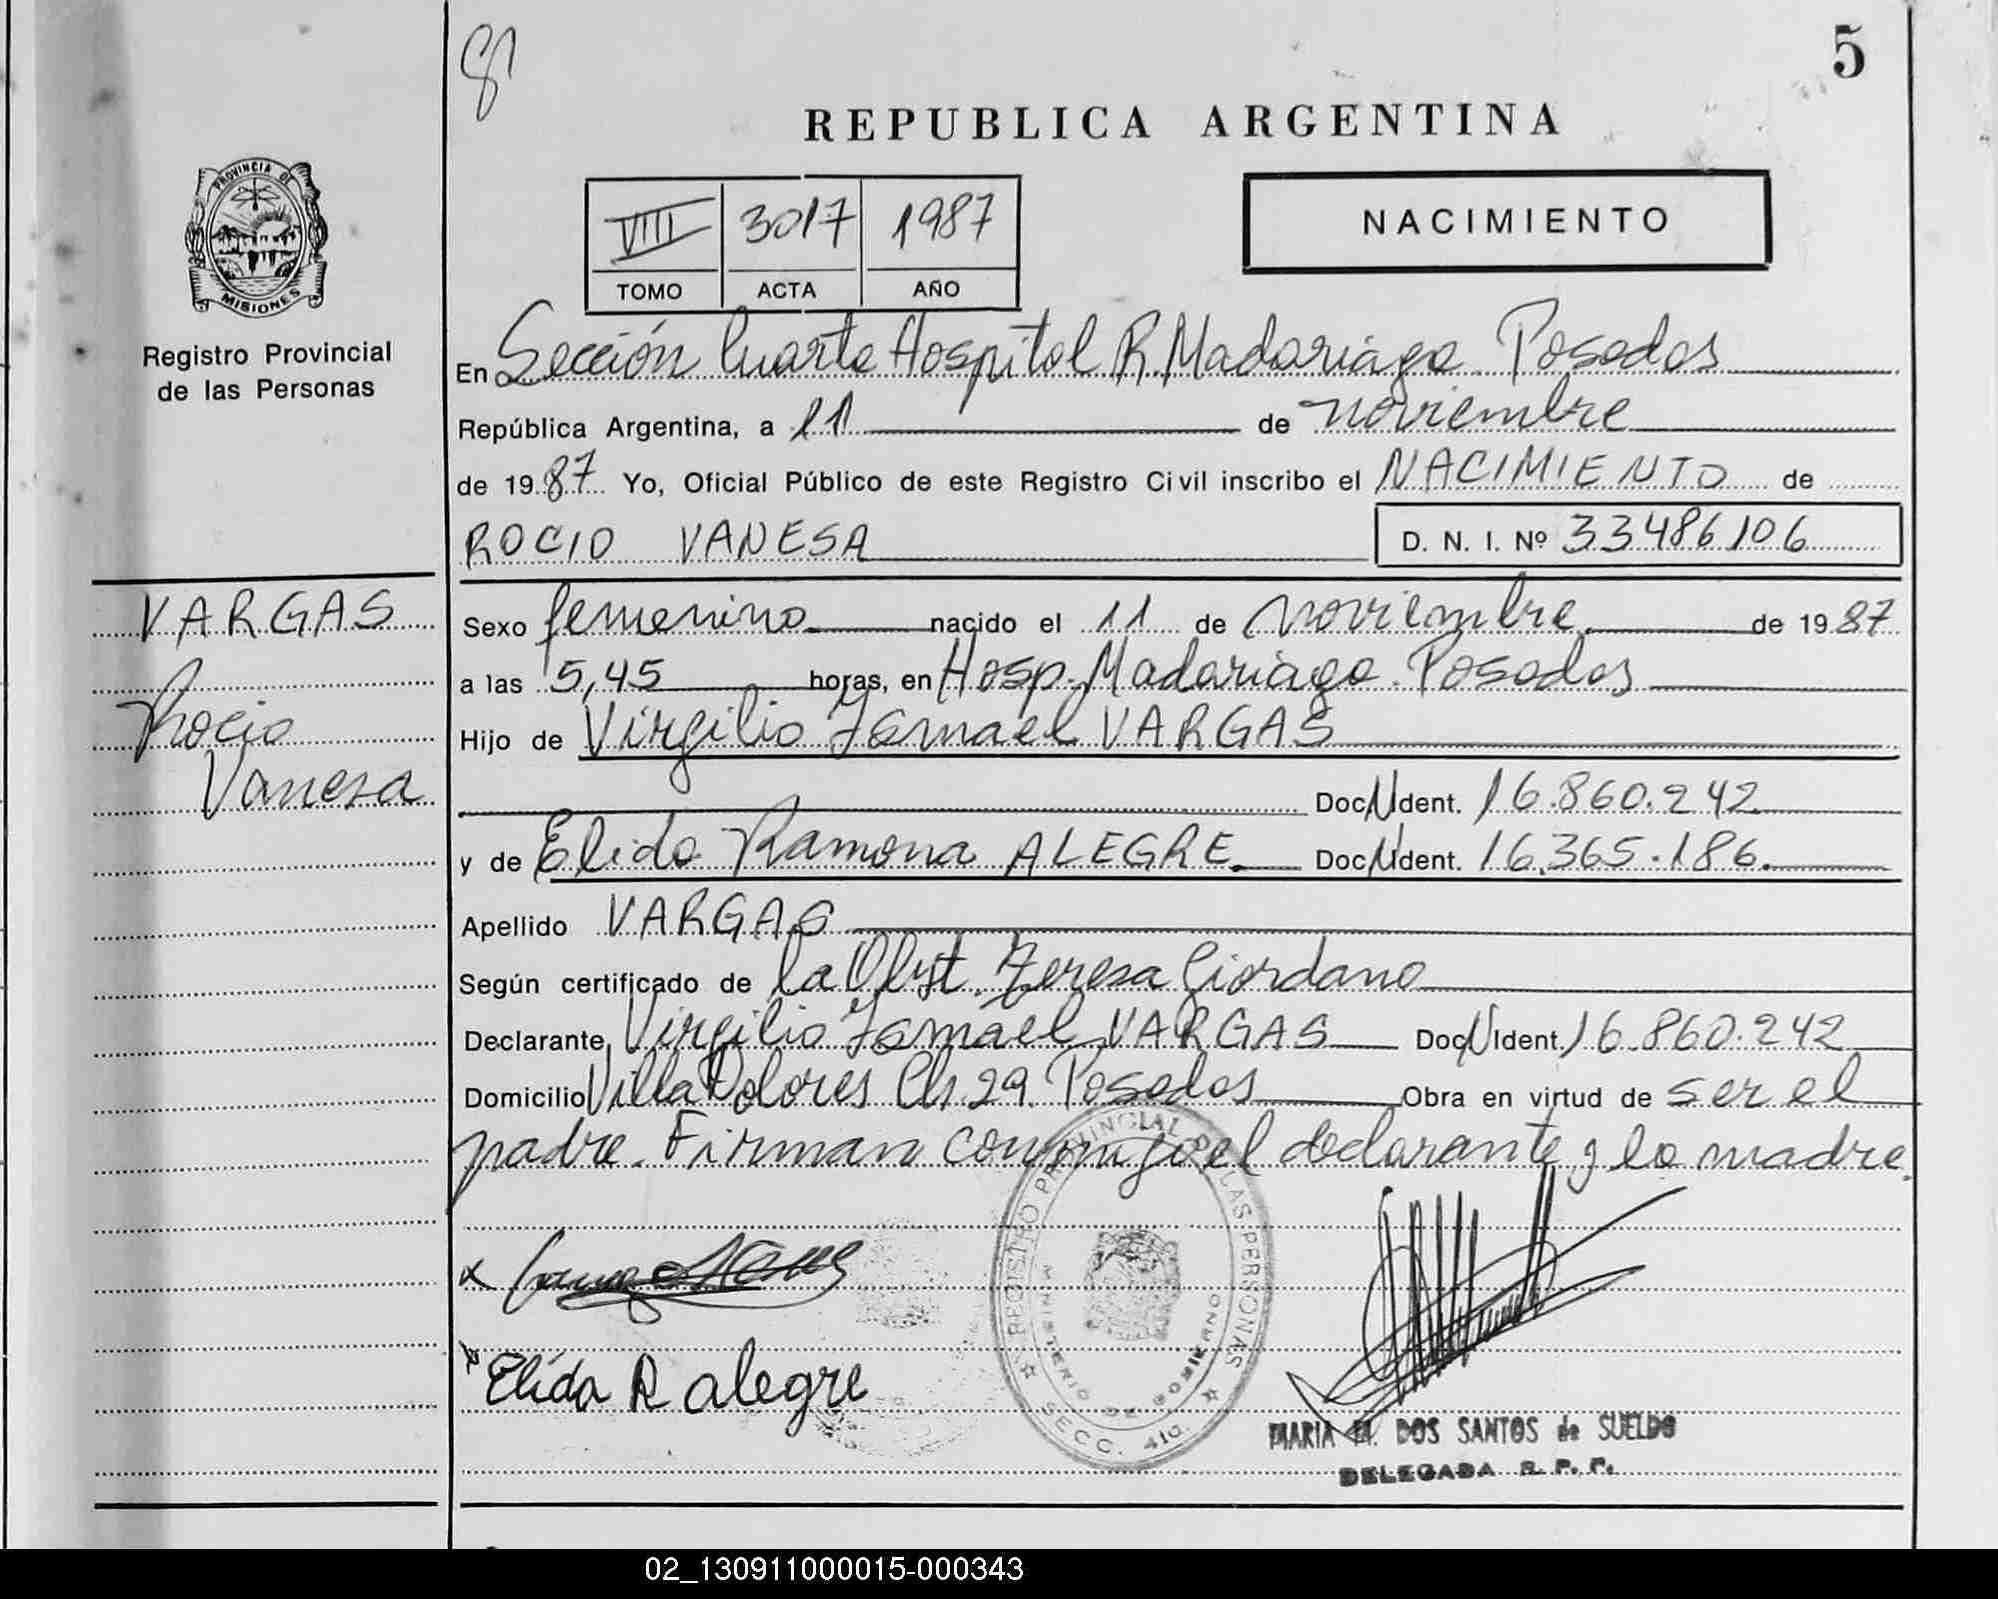 5
REPUBLICA ARGENTINA
PROVINCIA DE
MISIONES
Registro Provincial
de las Personas
VIII 3017 1987
TOMO ACTA AÑO
NACIMIENTO
En Sección Cuarta Hospital R. Madariaga. Posadas
República Argentina, a 11 de noviembre
de 1987 Yo, Oficial Público de este Registro Civil inscribo el NACIMIENTO de
ROCIO VANESA D. N. I. Nº 33486106
VARGAS
Rocio
Vanesa
Sexo femenino nacido el 11 de noviembre de 1987
a las 5,45 horas, en Hosp. Madariaga. Posadas
Hijo de Virgilio Ismael VARGAS
Doc. N. Ident. 16.860.242
y de Elida Ramona ALEGRE. Doc. N. Ident. 16.365.186.
Apellido VARGAS
Según certificado de la Obst. Teresa Giordano
Declarante Virgilio Ismael VARGAS Doc. N. Ident. 16.860.242
Domicilio Villa Dolores Ch. 29. Posadas Obra en virtud de ser el
padre. Firman conmigo el declarante y la madre.
REGISTRO PROVINCIAL DE LAS PERSONAS
MINISTERIO DE GOBIERNO
SECC. 4ta.
Elida R alegre
MARIA M. DOS SANTOS de SUELDO
DELEGADA R. P. P.
02_130911000015-000343